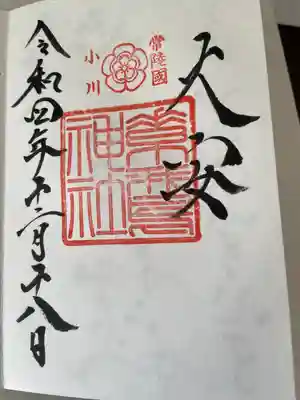 大安
常陸國
小川
素鵞
神社
令和四年十二月十八日